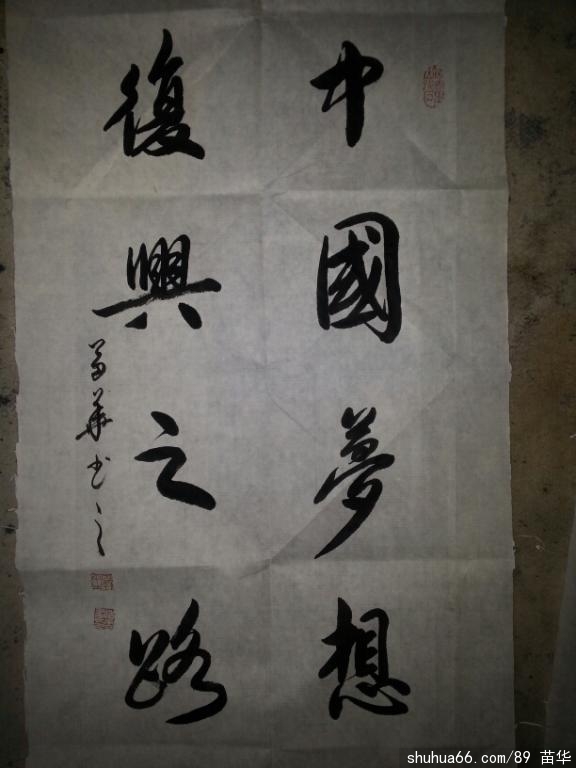 中國夢想
復興之路
苗華书之
shuhua66.com/89 苗华